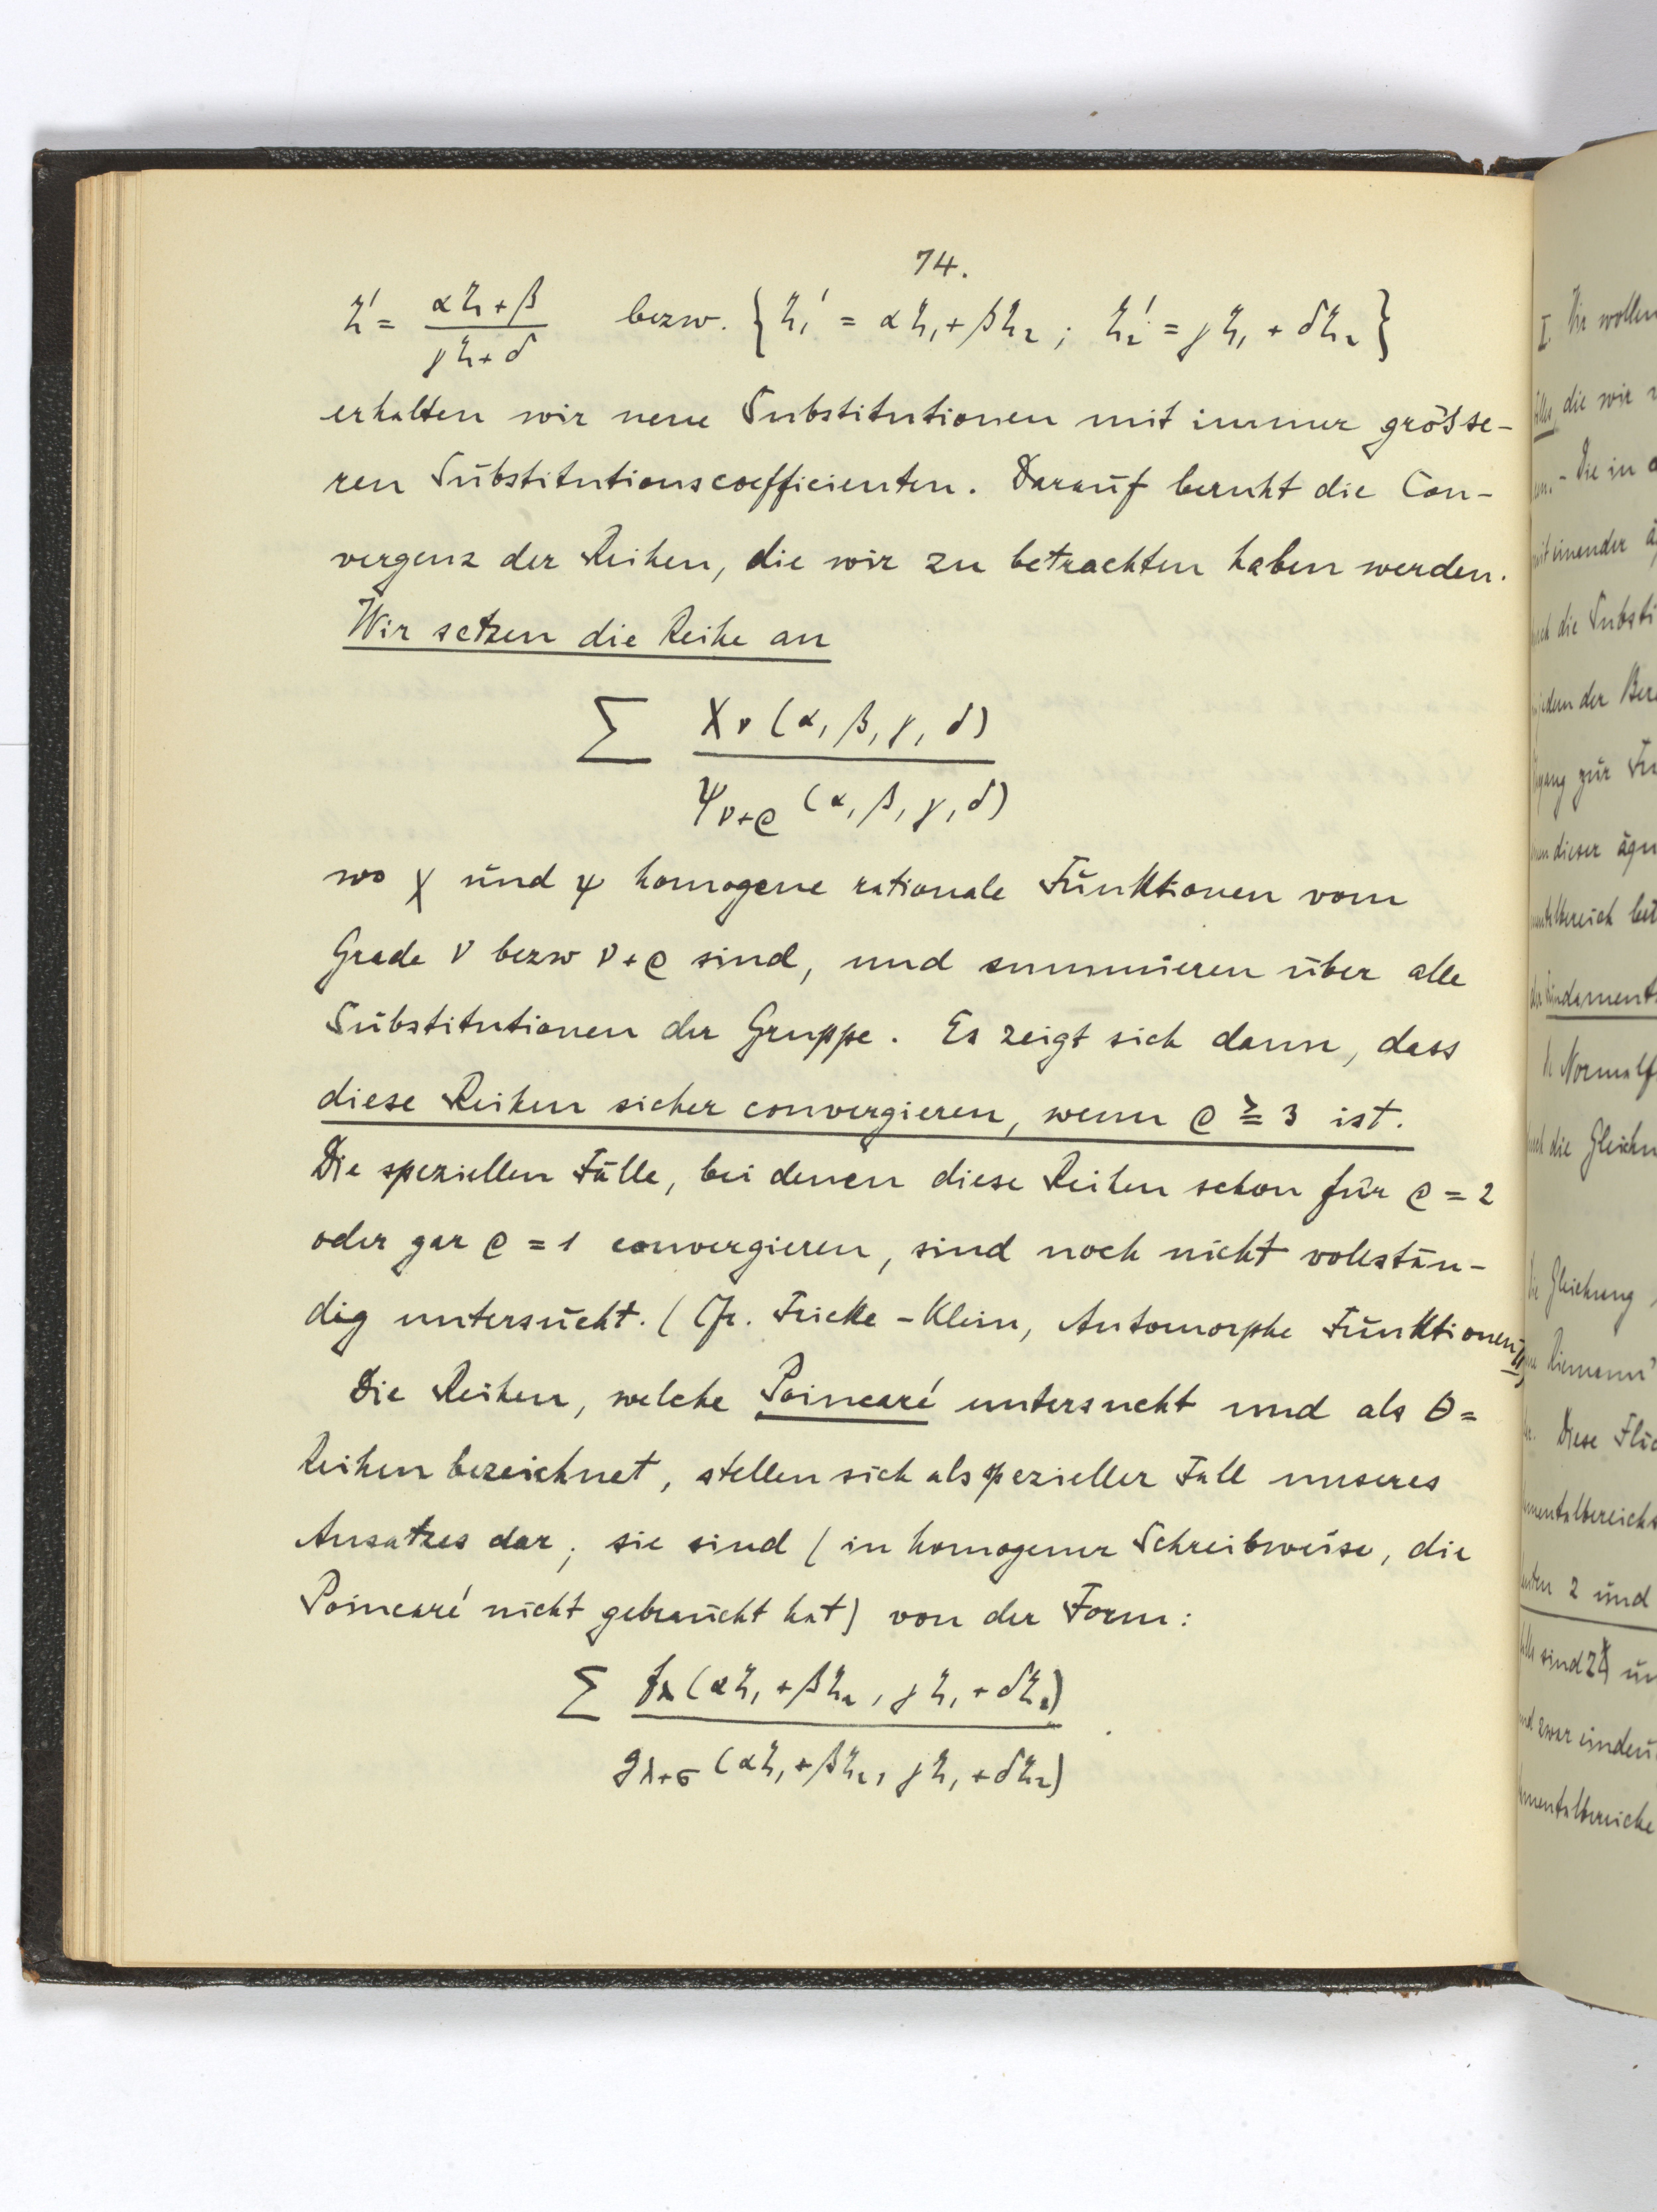 74.
ζ' = (αζ + β)/(γζ + δ) bezw. {ζ₁' = αζ₁ + βζ₂ ; ζ₂' = γζ₁ + δζ₂}
erhalten wir neue Substitutionen mit immer grösse-
ren Substitutionscoefficienten. Darauf beruht die Con-
vergenz der Reihen, die wir zu betrachten haben werden.
Wir setzen die Reihe an
∑ χ_ν (α, β, γ, δ)
ψ_ν+ρ (α, β, γ, δ)
wo χ und ψ homogene rationale Funktionen vom
Grade ν bezw ν+ρ sind, und summieren über alle
Substitutionen der Gruppe. Es zeigt sich dann, dass
diese Reihen sicher convergieren, wenn ρ ≧ 3 ist.
Die speziellen Fälle, bei denen diese Reihen schon für ρ = 2
oder gar ρ = 1 convergieren, sind noch nicht vollstän-
dig untersucht. (Cfr. Fricke-Klein, Automorphe Funktionen II)
Die Reihen, welche Poincaré untersucht und als Θ=
Reihen bezeichnet, stellen sich als spezieller Fall unseres
Ansatzes dar; sie sind (in homogener Schreibweise, die
Poincaré nicht gebraucht hat) von der Form:
∑ f_λ (αζ₁ + βζ₂, γζ₁ + δζ₂)
g_λ+σ (αζ₁ + βζ₂, γζ₁ + δζ₂)
I. Wir wollen
die wir
Die in
mit einander
die Substi
der
zur
dieser
Normalf
die Gleichu
die Gleichung
Riemann'
Diese
2 und
sind
und zwar